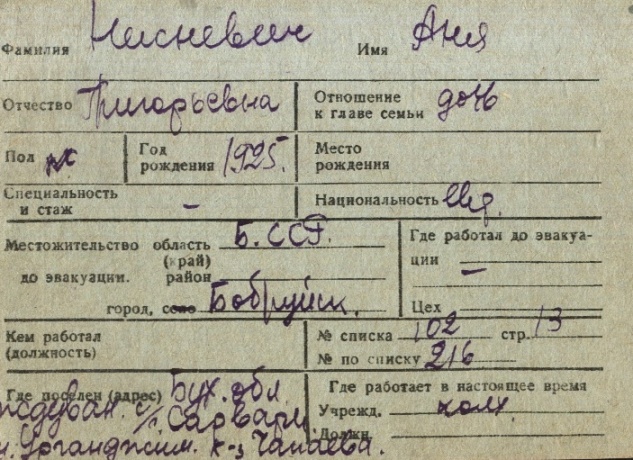 Фамилия Нисневич Имя Аня
Отчество Григорьевна Отношение к главе семьи дочь
Пол ж Год рождения 1925. Место рождения
Специальность и стаж – Национальность евр.
Местожительство область Б.ССР. Где работал до эвакуа-
(край) ции –
до эвакуации. район
город, село Бобруйск. Цех
Кем работал № списка 102 стр. 13
(должность) № по списку 216
Где поселен (адрес) Бух. обл. Где работает в настоящее время
с/ Учрежд. колх
к-з Чапаева. Должн.